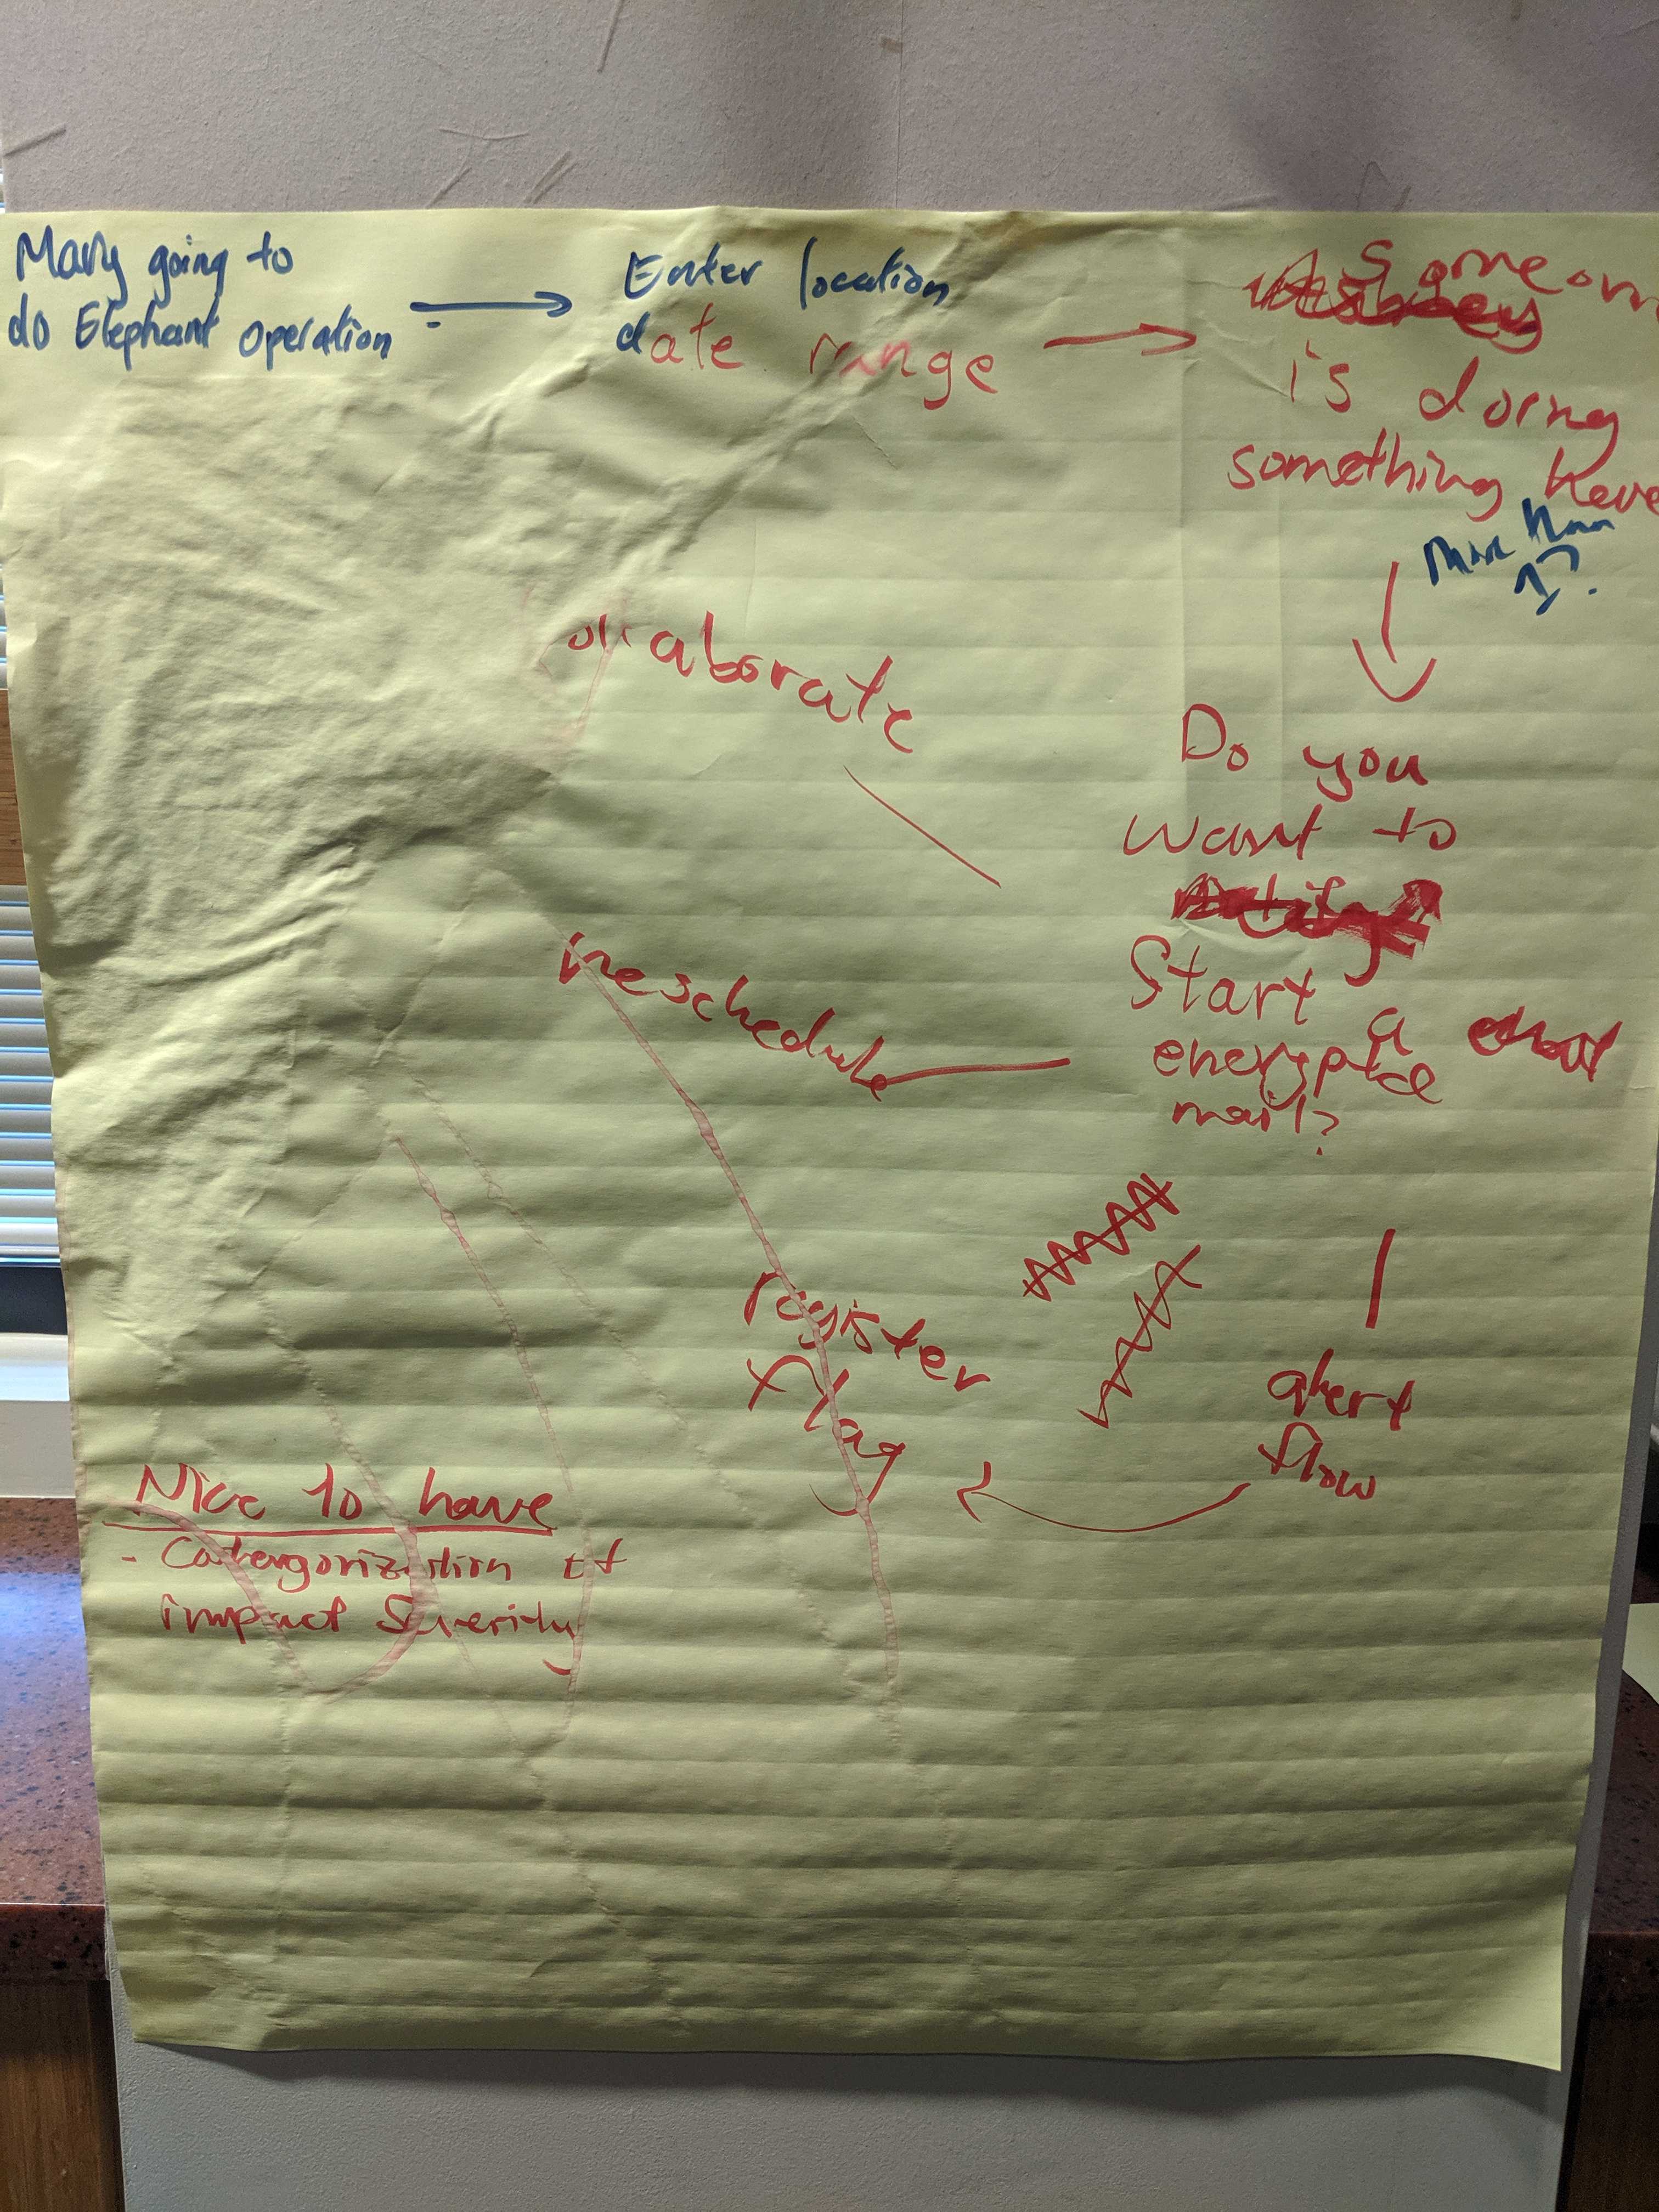 Mary going to
do Elephant operation
Enter location
date range
Someon
is doing
something here
More than
1?
Do you
want to
Start a
encrypted
mail?
collaborate
reschedule
register
flag
alert
flow
Nice to have
- Catergorization of
impact Severity